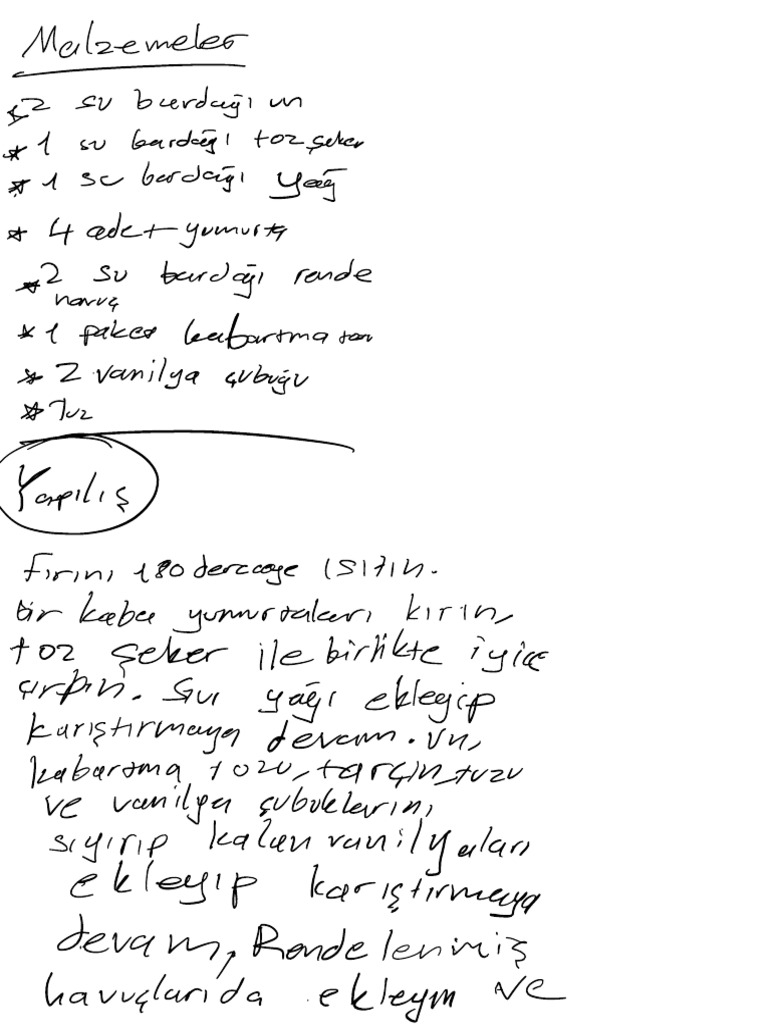 Malzemeler
* 2 su bardağı un
* 1 su bardağı toz şeker
* 1 su bardağı yağ
* 4 adet yumurta
* 2 su bardağı rende
havuç
* 1 paket kabartma tozu
* 2 vanilya çubuğu
* Tuz
Yapılış
Fırını 180 dereceye ısıtın.
Bir kaba yumurtaları kırın,
toz şeker ile birlikte iyice
çırpın. Sıvı yağı ekleyip
karıştırmaya devam. Un,
kabartma tozu, tarçın, tuzu
ve vanilya çubuklarını,
sıyırıp kalan vanilyaları
ekleyip karıştırmaya
devam, Rendelenmiş
havuçlarıda ekleyin ve